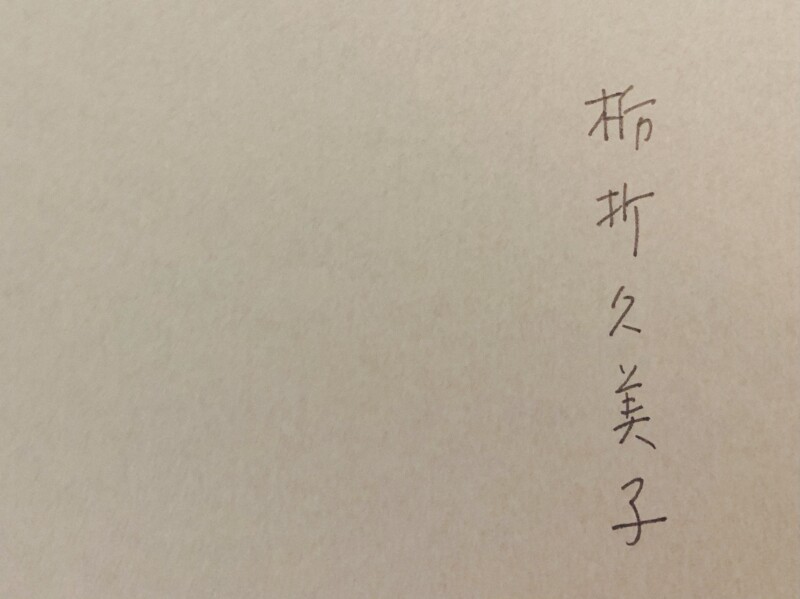 栃折久美子